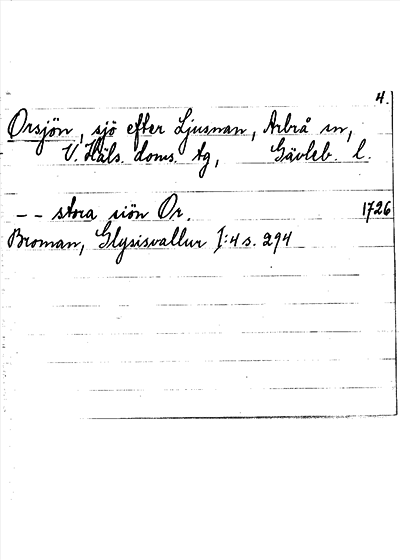 4.
Orsjön, sjö efter Ljusnan, Arbrå sn,
V. Häls. doms. tg, Gävleb. l.
-- stora siön Or. 1726
Broman, Glysisvallur I:4 s. 294